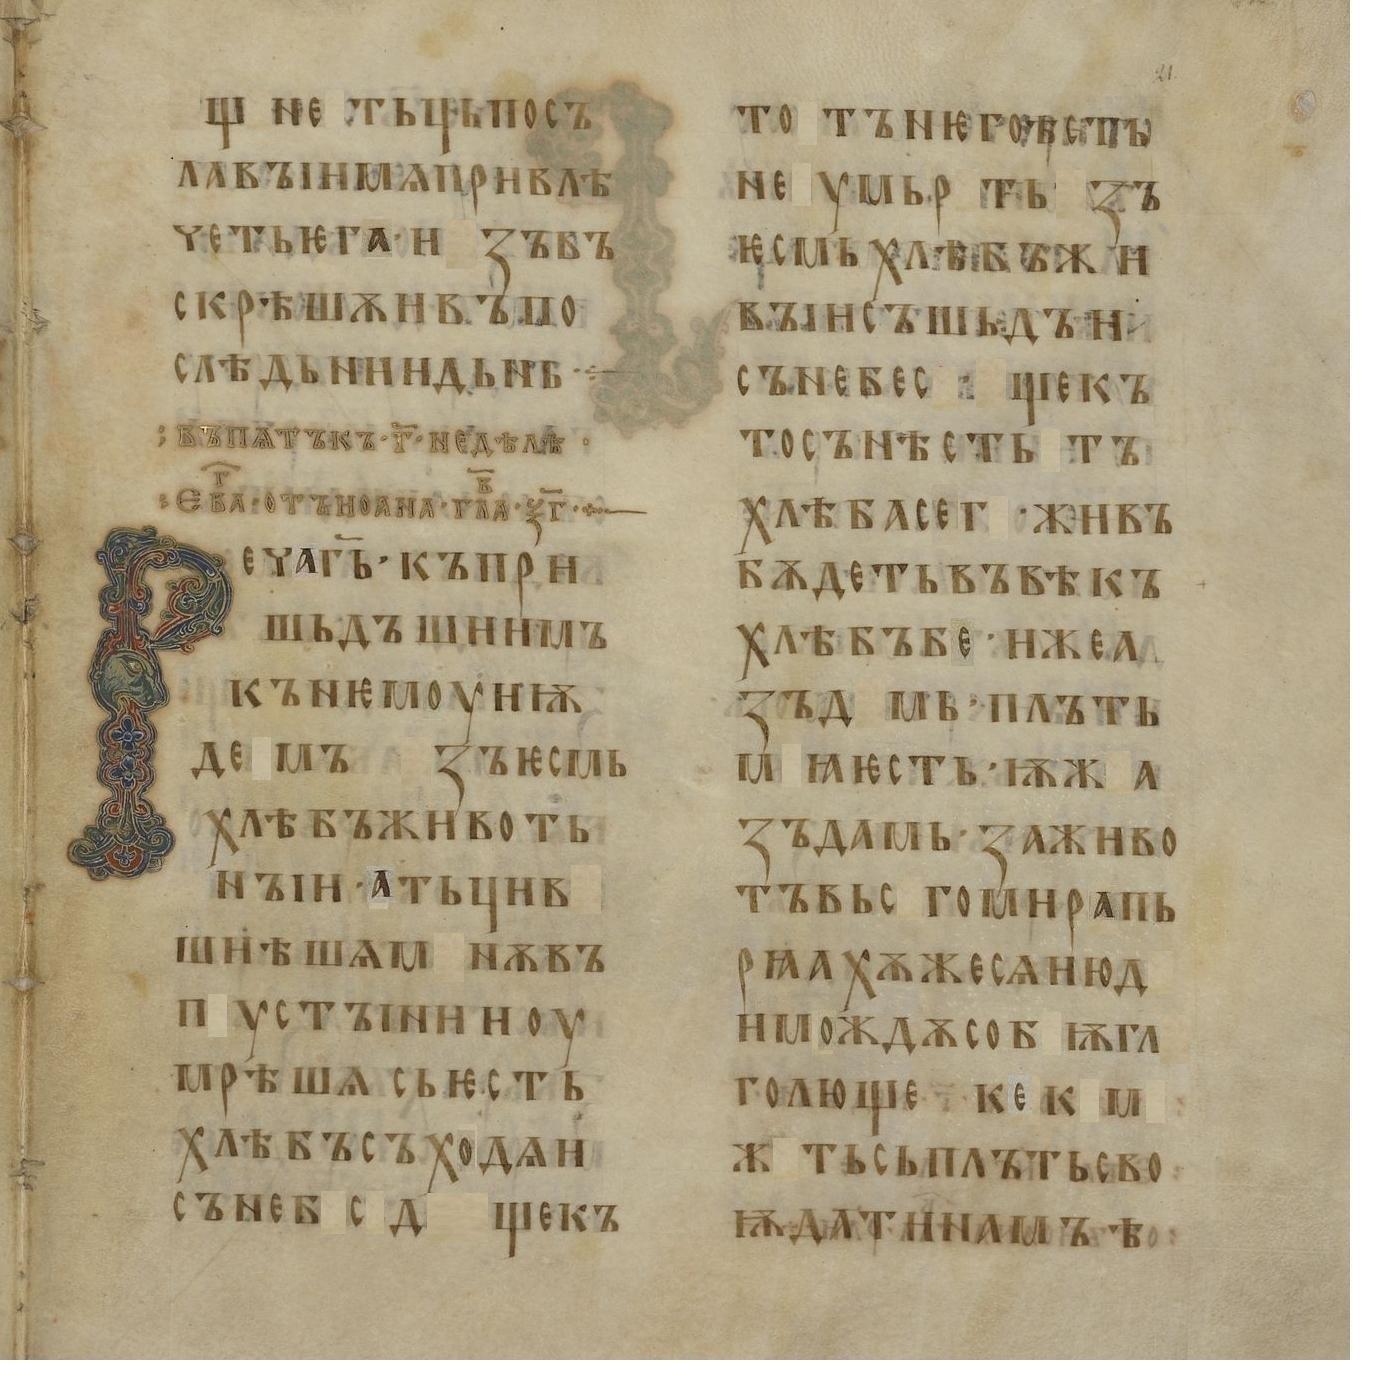 щ не тьць посъ
лавъıимѧпривлѣ
четьѥга·и зъвъ
скрѣшѫивъпо
слѣдьниидьнь·
:въпѧтъкъ·г҃·недѣлѣ·
:ева҃г·отъиоана·гл҃ва·ѯ҃г·
Речаг҃ь·къпри
шьдъшиимъ
кънѥмоуиѭ
де мъ зъѥсмь
хлѣбъживоть
нъıи·атьцив
шиꙗшѧм нѫвъ
п устъıнииоу
мрѣшѧсьѥсть
хлѣбъсъходѧи
сънеб с д щекъ
то тънѥговєпъ
не умьр ть зъ
ѥсмьхлѣбъжи
въıисъшьдъи
сънебес щекъ
тосънѣсть тъ
хлѣбасег ·живъ
бѫдетьвъвѣкъ
хлѣбъбе·ижеа
зъд мь·плъть
м ꙗѥсть·ѭж а
зъдамь·заживо
тъвьс гомирапь
рꙗахѫжесѧиюд
имождѫсоб ѭгл
голюще кек м
ж тьсьплътьсво
ѭдатинамъѣ